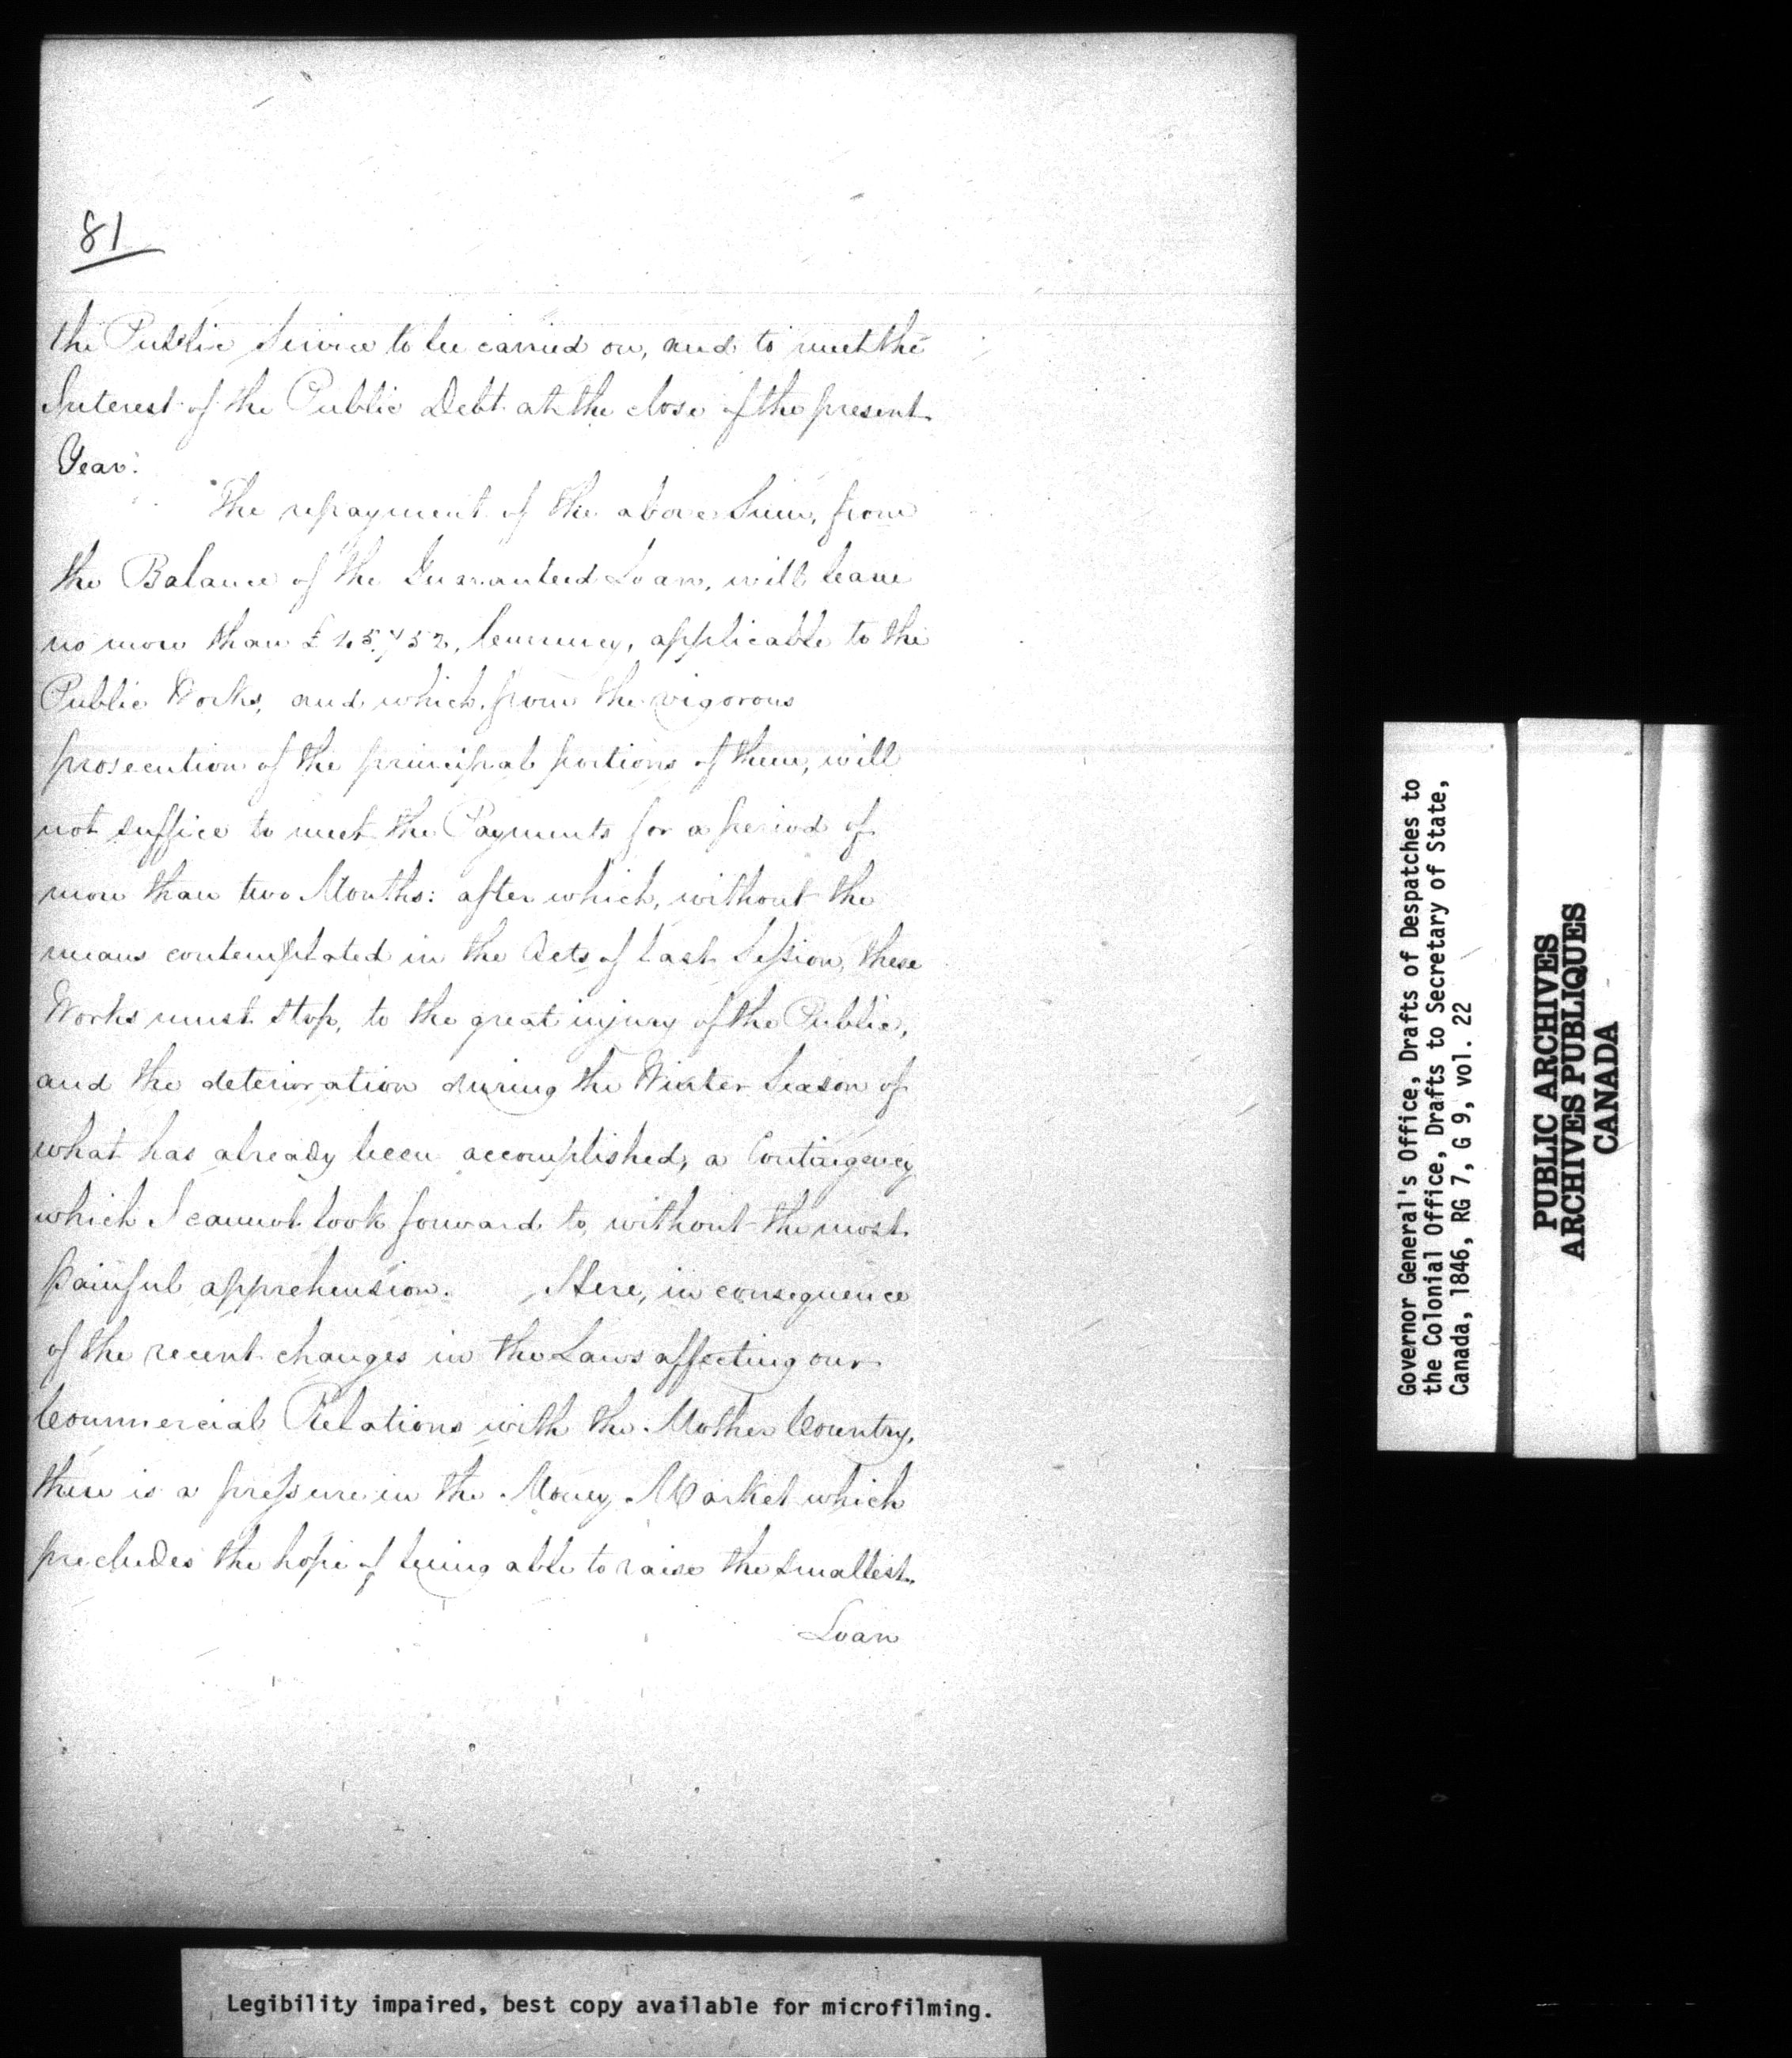 81
the Public Service to be carried on, and to meet the
Interest of the Public Debt at the close of the present
Year.
The repayment of the above Sum, from
the Balance of the Guaranteed Loan, will leave
no more than £ Currency, applicable to the
Public Works, and which from the vigorous
prosecution of the principal portions of them, will
not suffice to meet the Payments for a period of
more than two Months: after which, without the
means contemplated in the Acts of last Session, these
Works must stop, to the great injury of the Public,
and the deterioration during the Winter Season of
what has already been accomplished, a Contingency
which I cannot look forward to, without the most
painful apprehension. Here, in consequence
of the recent changes in the Laws affecting our
Commercial Relations with the Mother Country,
there is a pressure in the Money Market which
precludes the hope of being able to raise the smallest
Loan
Governor General's Office, Drafts of Despatches to
the Colonial Office, Drafts to Secretary of State,
Canada, 1846, RG 7, G 9, vol. 22
PUBLIC ARCHIVES
ARCHIVES PUBLIQUES
CANADA
Legibility impaired, best copy available for microfilming.